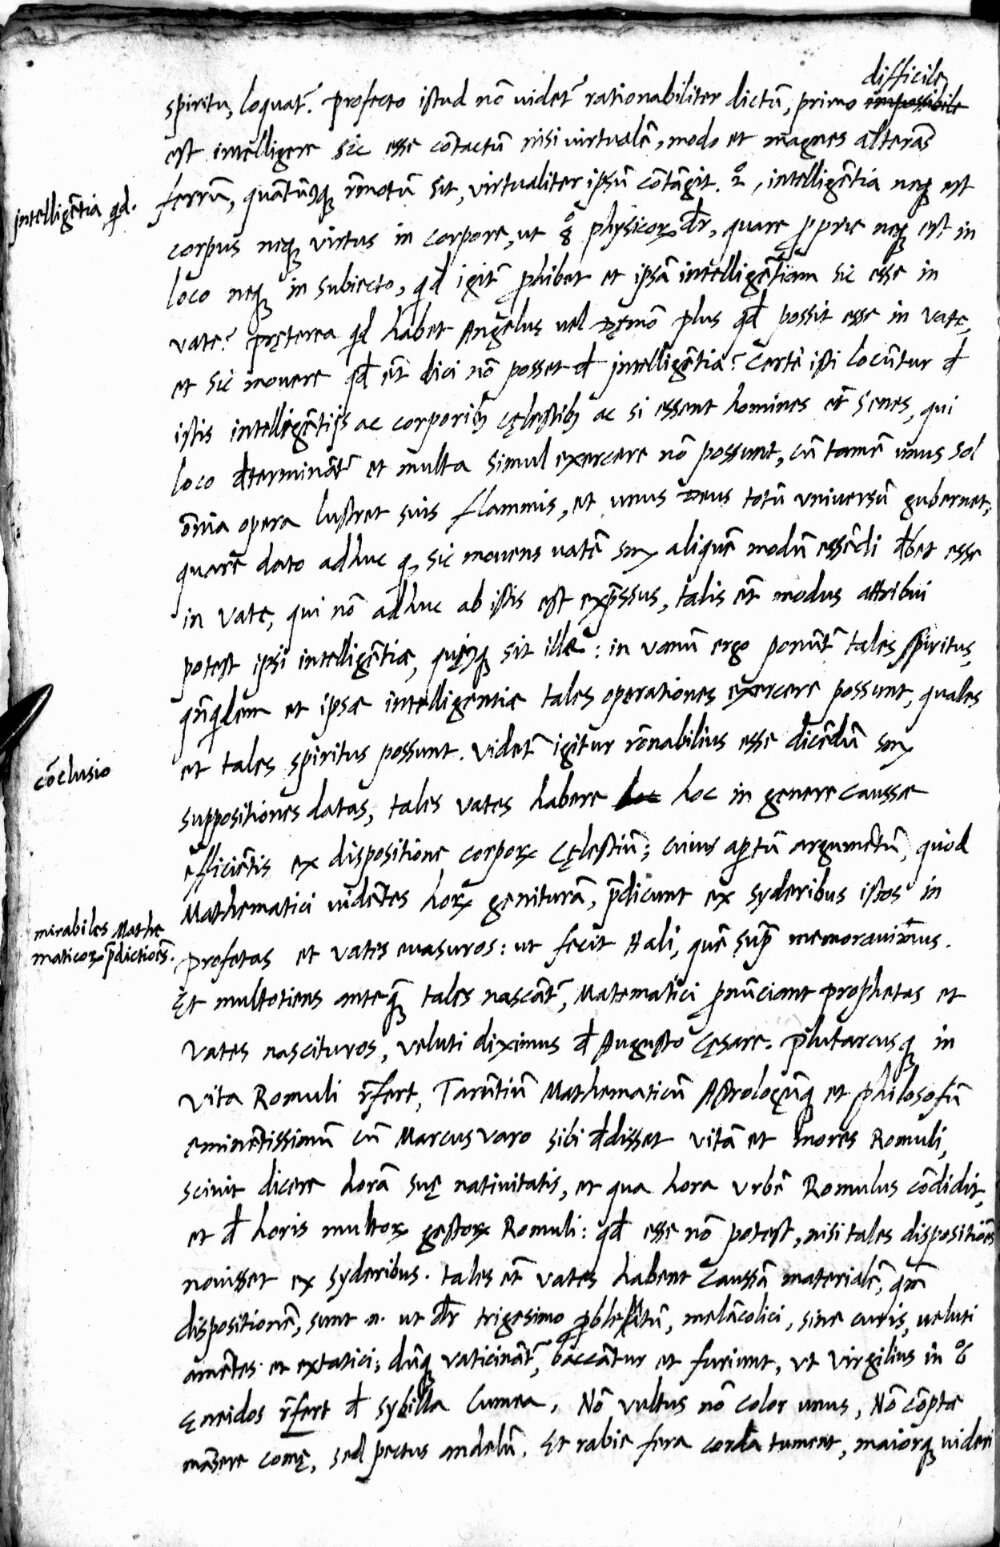 difficile
spiritu, loquat᷑? Profecto istud nō uidet᷑ rationabiliter dictū, primo impossibile
est intelligere sic esse cōtactū nisi virtualē, modo et magnes alterās
intelligētia qd.
ferrū, quātūcq; rēmotū sit, virtualiter ipsū cōtāgit. 2°, intelligētia neq; est
corpus neq; virtus in corpore, ut 8° physicoꝝ dr̄, quare ꝓprie neq; est in
loco neq; in subiecto, qd igit᷑ ꝓhibet et ipsā intelligētiam sic esse in
vate? Pręterea qd habet Angelus uel Dęmō plus qd possit esse in vate,
et sic mouere qd et̄ dici nō posset d̄ intelligētia? Certe isti locūtur d̄
istis intelligētijs ac corporib; cęlestib; ac si essent homines et̄ senes, qui
loco d̄termināt᷑ et multa simul exercere nō possunt, cū tamē unus sol
ōmnia opera lustret suis flammis, et unus Deus totū vniuersū gubernet,
quarē dato adhuc q, sic mouens uatē sm̄ aliquē modū essēdi d̄bet esse
in vate, qui nō adhuc ab istis est exp̄ssus, talis et̄ modus attribui
potest ipsi intelligētiæ, quęcq; sit illa: in vanū ergo ponūt᷑ tales spiritus,
qn̄qdem et ipsæ intelligentiæ tales operationes exercere possunt, quales
et tales spiritus possunt. Videt᷑ igitur rōnabilius esse dicēdū sm̄
cōclusio
suppositiones datas, tales vates habere hoc hoc in genere caussæ
efficiētis ex dispositione corpoꝝ cęlestiū; cuius aptū argumētū, quod
Mathematici uidētes hoꝝ geniturā, p̄dicunt ex syderibus istos in
mirabiles Mathe
maticoꝝ p̄dictiōes.
Profetas et vates euasuros: ut fecit Hali, quē sup̄ memorauimus.
Et multotiens anteq; tales nascāt᷑, Matematici p̄nūciant prophetas et
Vates nascituros, veluti diximus d̄ Augusto Cęsare. Plutarcusq; in
vita Romuli r̄fert, Tarūtiū Mathematicū Astrologūq; et philosofū
eminētissimū cū Marcus varo sibi d̄disset vitā et mores Romuli,
sciuit dicere horā suę natiuitatis, et qua hora vrbē Romulus cōdidit,
et d̄ horis multoꝝ gestoꝝ Romuli: qd esse nō potest, nisi tales dispositiōes
nouisset ex syderibus. tales et̄ vates habent caussā materialē, qm̄
dispositionē, sunt .n. ut dr̄ trigesimo problematū, melācolici, sine curis, ueluti
amētes et extatici; dūq; vaticināt᷑, baccātur et furiunt, vt Virgilius in 6°
Ęneidos r̄fert d̄ Sybilla Cumea. Nō vultus nō color unus, Nō cōptæ
māsere comę, sed pectus anhelū. Et rabie fera corda tument, maiorq; uideri